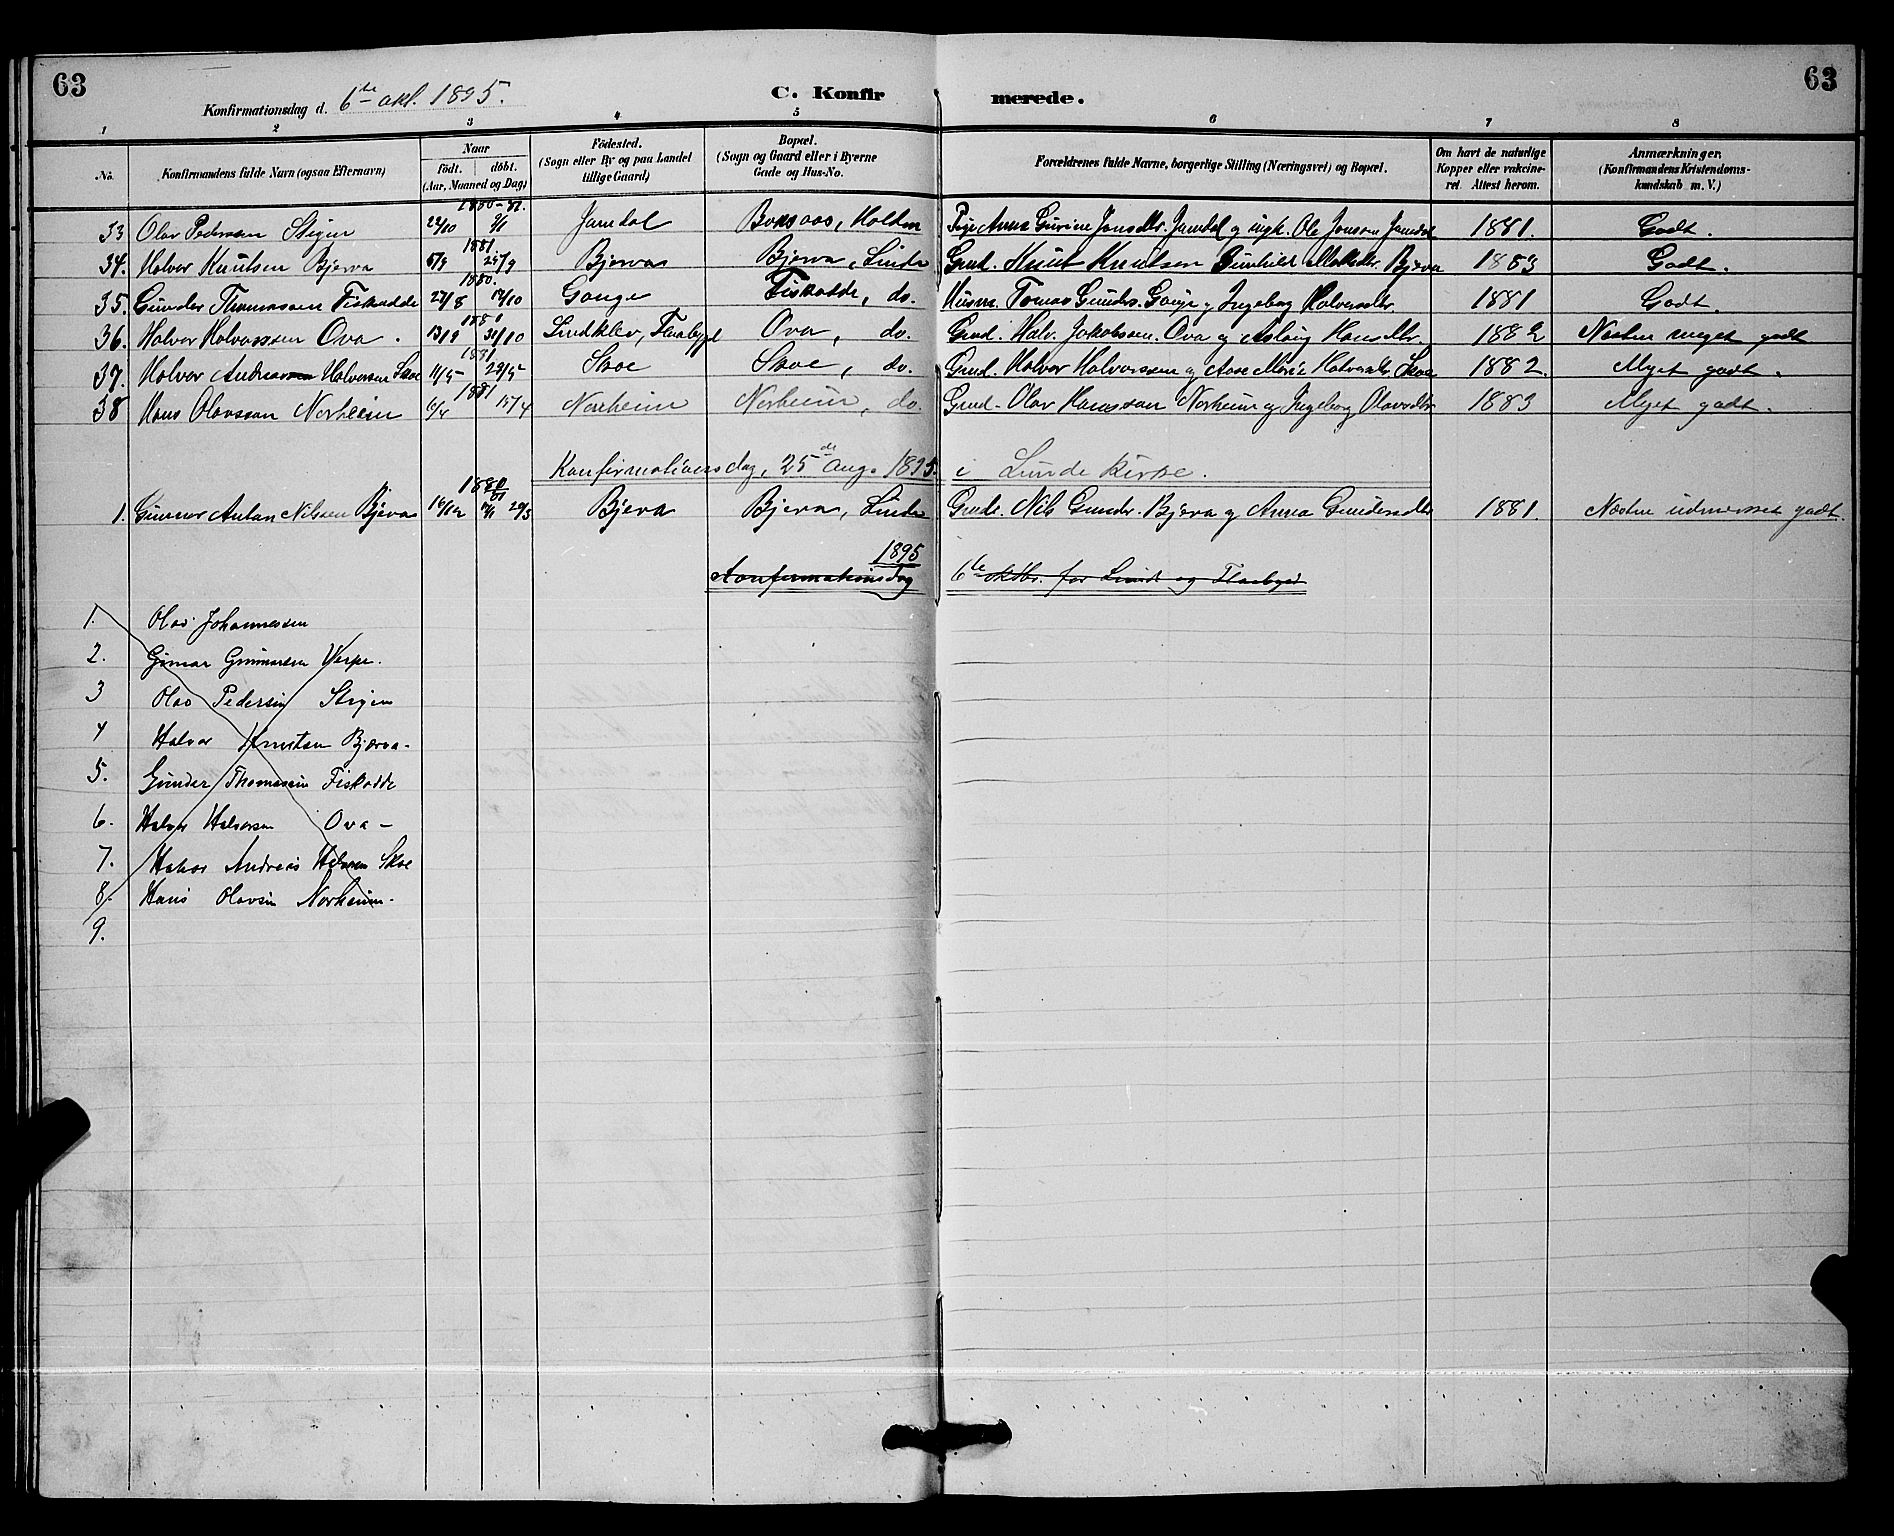 63
63
Konfirmationsdag d. 6te okt. 1895.
C. Konfirmerede.
1 2 3 4 5 6 7 8
No.
Konfirmandens fulde Navn (ogsaa Efternavn)
Naar
født. døbt.
(Aar, Maaned og Dag)
Födested.
(Sogn eller By og paa Landet
tillige Gaard)
Bopæl.
(Sogn og Gaard eller i Byerne
Gade og Hus-No.
Forældrenes fulde Navne, borgerlige Stilling (Næringsvei) og Bopæl.
Om havt de naturlige
Kopper eller vakcine-
ret. Attest herom.
Anmærkninger.
(Konfirmandens Kristendoms-
kundskab m. V.)
33 Olav Pedersen Stigen 22/10 1880-81. 2/1 Jamdal Bonsaas, Holden Pige Anna Gurine Jonsdtr. Jamdal og ungk. Ole Jonsen Jamdal 1881. Godt.
34. Halvor Knutsen Bjerva 5/9 1881 25/9 Bjerva Bjerva, Lunde Grd. Knut Knutsen Gunhild Bjerva 1883 Godt.
35. Gunder Thomassen Fiskodde 27/8 1880. 17/10 Gonge Fiskodde, do. Husm. Tomas Gunders. Gonge og Ingeborg Halvorsdtr. 1881 Godt.
36. Halvor Halvorssen Ova. 13/9 1880 31/10 Lindklev, Flaabygd Ova, do. Grd. Halv. Jakobssen Ova og Aslaug Hansdtr. 1882 Næsten meget godt
37. Halvor Andreas Halvorsen Skoe 11/5 1881 29/5 Skoe Skoe, do. Grd. Halvor Halvorssen og Aase Marie Halvorsdtr. Skoe 1882. Myet godt.
38 Hans Olavssen Norheim 6/4 1881 15/4 Norheim Norheim, do. Grd. Olav Hanssen Norheim og Ingeborg Olavsdtr 1883 Myet godt.
Konfirmationsdag, 25de Aug. 1895. i Lunde Kirke.
1. Gunnar Anton Nilssen Bjerva 16/12 1880/81 29/3 Bjerva Bjerva, Lunde Grdr. Nils Gundr. Bjerva og Anna Gundersdtr 1881. Næsten udmerket godt.
1895
Konfirmationsdag 6te oktbr. for Lunde og Flaabygd
1. Olav Johannessen
2. Gunnar Gunnarsen Verpe.
3 Olav Pedersen Stigen
4 Halvor Knutsen Bjerva-
5. Gunder Thomassen Fiskodde
6. Halvor Halvorsen Ova -
7. Halvor Andreas Halvorsen Skoe
8. Hans Olavsen Norheim.
9.